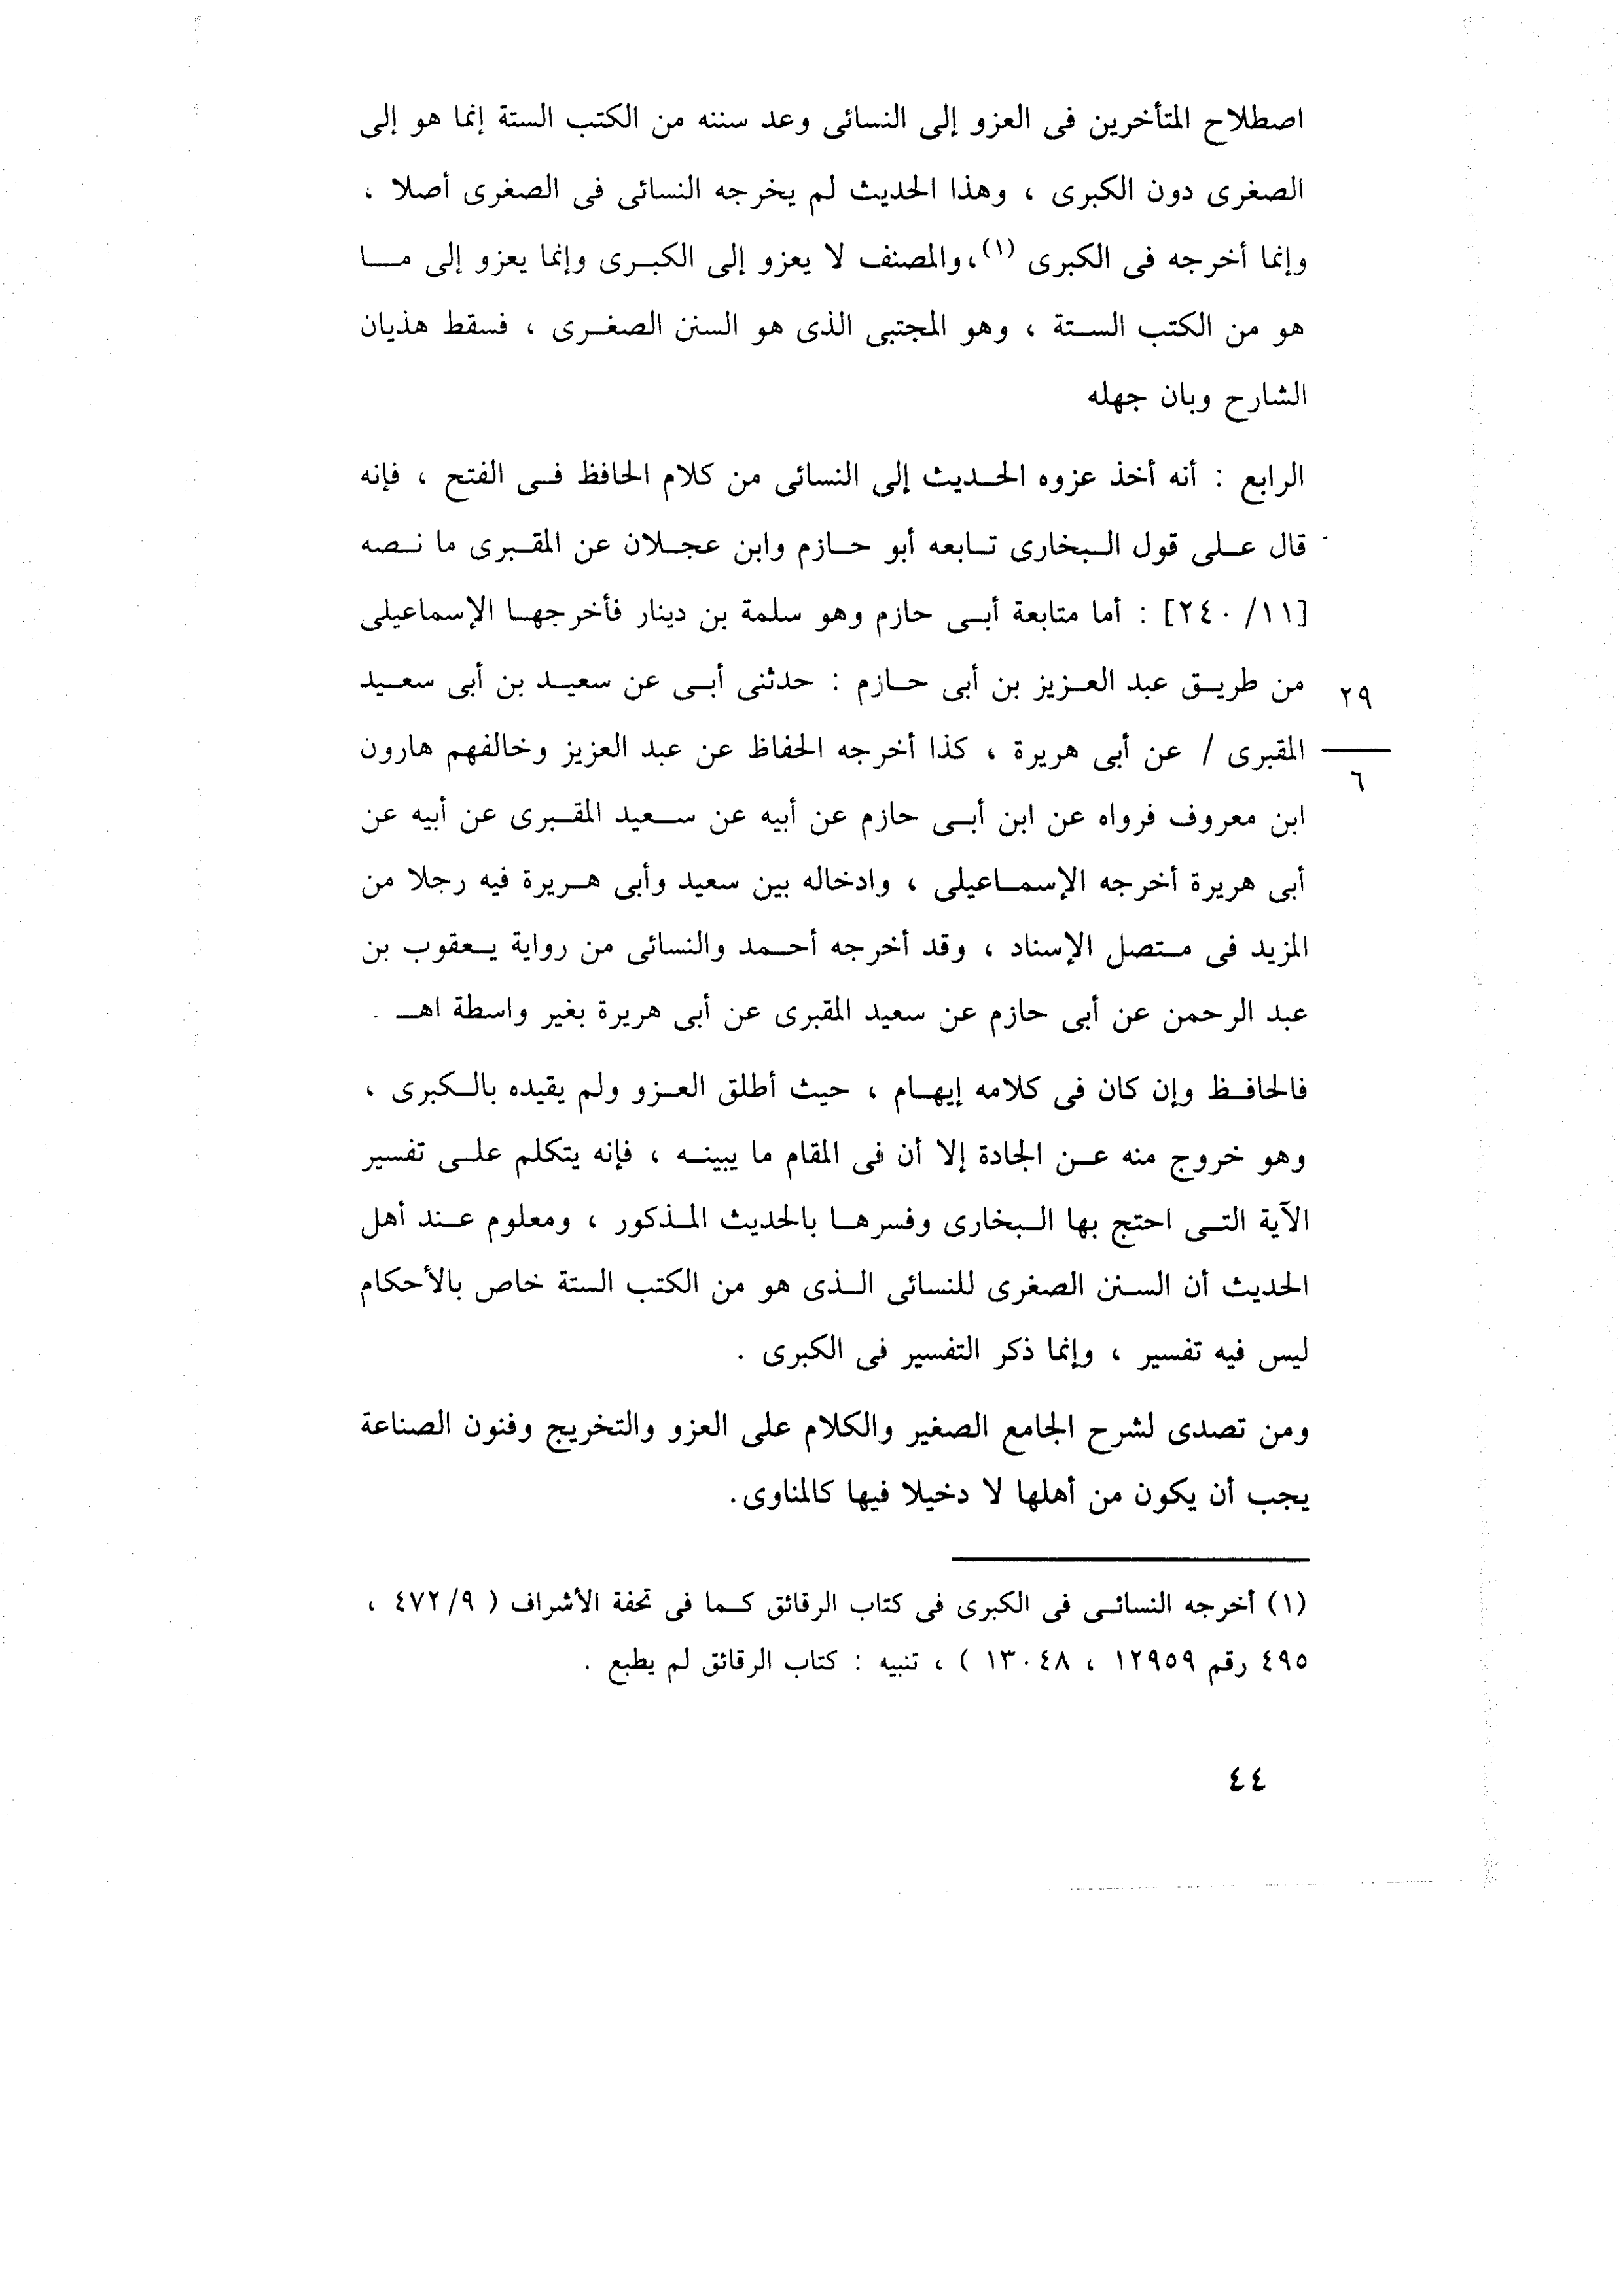 اصطلاح المتأخرين فى العزو إلى النسائى وعد سننه من الكتب الستة إنما هو إلى
الصغرى دون الكبرى ، وهذا الحديث لم يخرجه النسائى فى الصغرى أصلا ،
وإنما أخرجه فى الكبرى (١)، والمصنف لا يعزو إلى الكبرى وإنما يعزو إلى ما
هو من الكتب الستة ، وهو المجتبى الذى هو السنن الصغرى ، فسقط هذيان
الشارح وبان جهله
الرابع : أنه أخذ عزوه الحديث إلى النسائى من كلام الحافظ فى الفتح ، فإنه
قال على قول البخارى تابعه أبو حازم وابن عجلان عن المقبرى ما نصه
[١١/ ٢٤٠] : أما متابعة أبى حازم وهو سلمة بن دينار فأخرجها الإسماعيلى
من طريق عبد العزيز بن أبى حازم : حدثنى أبى عن سعيد بن أبى سعيد
٢٩
المقبرى / عن أبى هريرة ، كذا أخرجه الحفاظ عن عبد العزيز وخالفهم هارون
٦
ابن معروف فرواه عن ابن أبى حازم عن أبيه عن سعيد المقبرى عن أبيه عن
أبى هريرة أخرجه الإسماعيلى ، وادخاله بين سعيد وأبى هريرة فيه رجلا من
المزيد فى متصل الإسناد ، وقد أخرجه أحمد والنسائى من رواية يعقوب بن
عبد الرحمن عن أبى حازم عن سعيد المقبرى عن أبى هريرة بغير واسطة اهـ .
فالحافظ وإن كان فى كلامه إيهام ، حيث أطلق العزو ولم يقيده بالكبرى ،
وهو خروج منه عن الجادة إلا أن فى المقام ما يبينه ، فإنه يتكلم على تفسير
الآية التى احتج بها البخارى وفسرها بالحديث المذكور ، ومعلوم عند أهل
الحديث أن السنن الصغرى للنسائى الذى هو من الكتب الستة خاص بالأحكام
ليس فيه تفسير ، وإنما ذكر التفسير فى الكبرى .
ومن تصدى لشرح الجامع الصغير والكلام على العزو والتخريج وفنون الصناعة
يجب أن يكون من أهلها لا دخيلا فيها كالمناوى.
(١) أخرجه النسائى فى الكبرى فى كتاب الرقائق كما فى تحفة الأشراف ( ٤٧٢/٩ ،
٤٩٥ رقم ١٢٩٥٩ ، ١٣٠٤٨ ) ، تنبيه : كتاب الرقائق لم يطبع .
٤٤